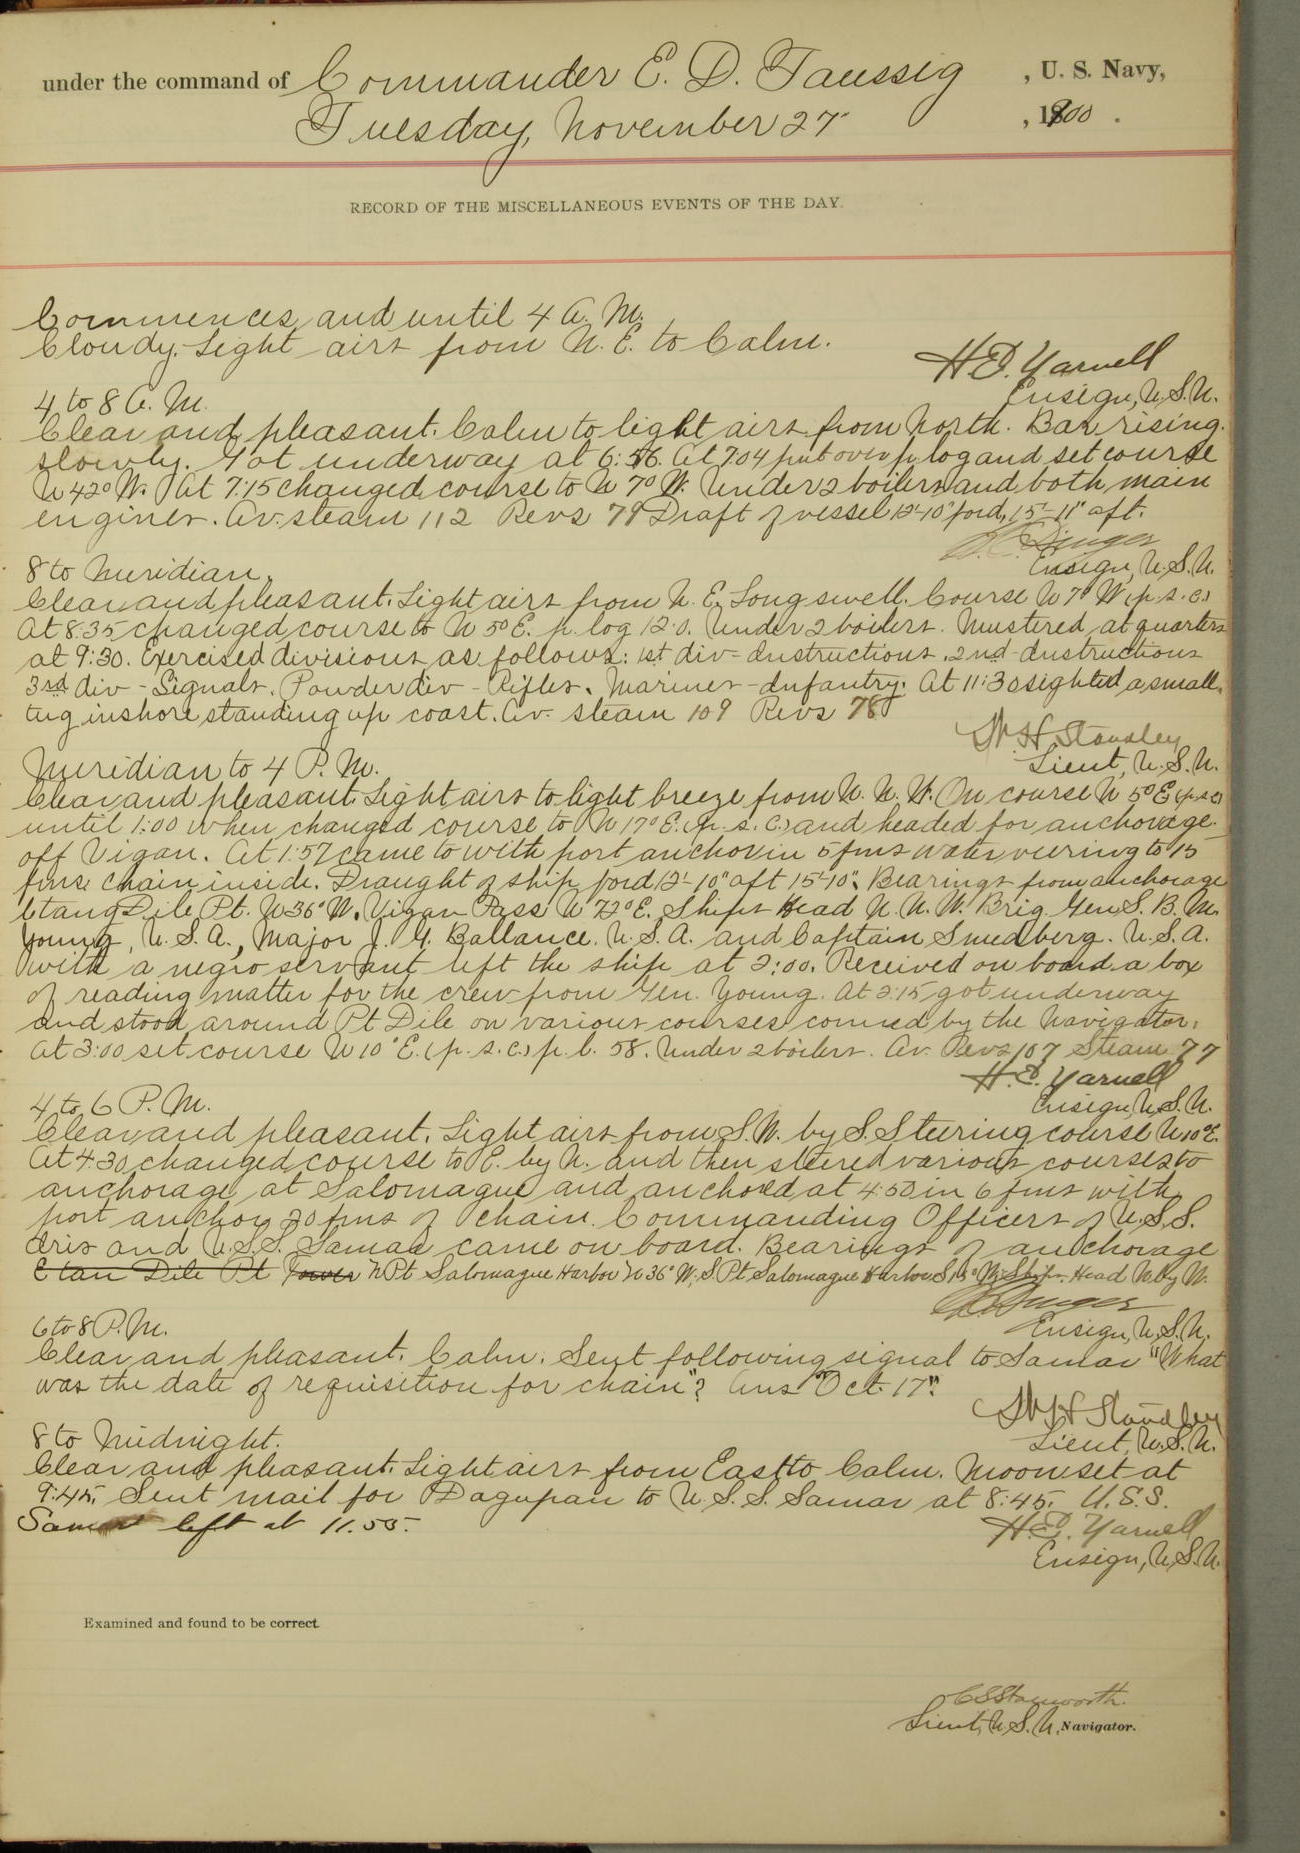 under the command of Commander E. D. Taussig, U. S. Navy,
Tuesday, November 27, 1900.
RECORD OF THE MISCELLANEOUS EVENTS OF THE DAY.
Commences and until 4 A. M.
Cloudy. Light airs from N. E. to Calm.
H. E. Yarnell
Ensign, U. S. N.
4 to 8 A. M.
Clear and pleasant. Calm to light airs from North. Bar rising
slowly. Got underway at 6:56. At 7:04 put over p. log and set course
N 42° W. At 7:15 changed course to N 7° W. Under 2 boilers and both main
engines. Av. steam 112 Revs 79 Draft of vessel 12'-10" for'd, 15'-11" aft.
Dinger
Ensign, U. S. N.
8 to Meridian.
Clear and pleasant. Light airs from N. E. Long swell. Course N 7° W (p. s. c.)
At 8:35 changed course to N 5° E. p. log 12.0. Under 2 boilers. Mustered at quarters
at 9:30. Exercised divisions as follows: 1st div - Instructions. 2nd - Instructions
3rd div - Signals. Powder div - Rifles. Marines - Infantry. At 11:30 sighted a small
tug inshore standing up coast. Av. steam 109 Revs 78
W. H. Standley
Lieut, U. S. N.
Meridian to 4 P. M.
Clear and pleasant. Light airs to light breeze from N. N. W. On course N 5° E (p. s. c)
until 1:00 when changed course to N 17° E. (p. s. c.) and headed for anchorage
off Vigan. At 1:57 came to with port anchor in 5 fms water veering to 15
fms chain inside. Draught of ship for'd 12'-10" aft 15'-10". Bearings from anchorage
Etang Dile Pt. N 36° W. Vigan Pass N 72° E. Ships Head N. N. W. Brig. Gen. S. B. M.
Young, U. S. A., Major J. G. Ballance. U. S. A. and Captain Smedberg. U. S. A.
with a negro servant left the ship at 2:00. Received on board a box
of reading matter for the crew from Gen. Young. At 2:15 got underway
and stood around Pt Dile on various courses conned by the Navigator.
At 3:00 set course N 10° E. (p. s. c.) p. l. 58. Under 2 boilers. Av. Revs 107 Steam 77
H. E. Yarnell
Ensign, U. S. N.
4 to 6 P. M.
Clear and pleasant. Light airs from S. W. by S. Steering course N 10° E.
At 4:30 changed course to E. by N. and then steered various courses to
anchorage at Salomague and anchored at 4:50 in 6 fms with
port anchor 20 fms of chain. Commanding Officers of U. S. S.
Iris and U. S. S. Samar came on board. Bearings of anchorage
Etan Dile Pt Tower N Pt Salomague Harbor N 36° W, S. Pt Salomague Harbor S 15° W. Ships Head N. by W.
Dinger
Ensign, U. S. N.
6 to 8 P. M.
Clear and pleasant. Calm. Sent following signal to Samar "What
was the date of requisition for chain"? Ans "Oct. 17".
W H Standley
Lieut, U. S. N.
8 to Midnight.
Clear and pleasant. Light airs from East to Calm. Moon set at
9:45. Sent mail for Dagupan to U. S. S. Samar at 8:45. U. S. S.
Samar left at 11.55.
H. E. Yarnell
Ensign, U. S. N.
Examined and found to be correct.
C S Stanworth.
Lieut, U. S. N., Navigator.